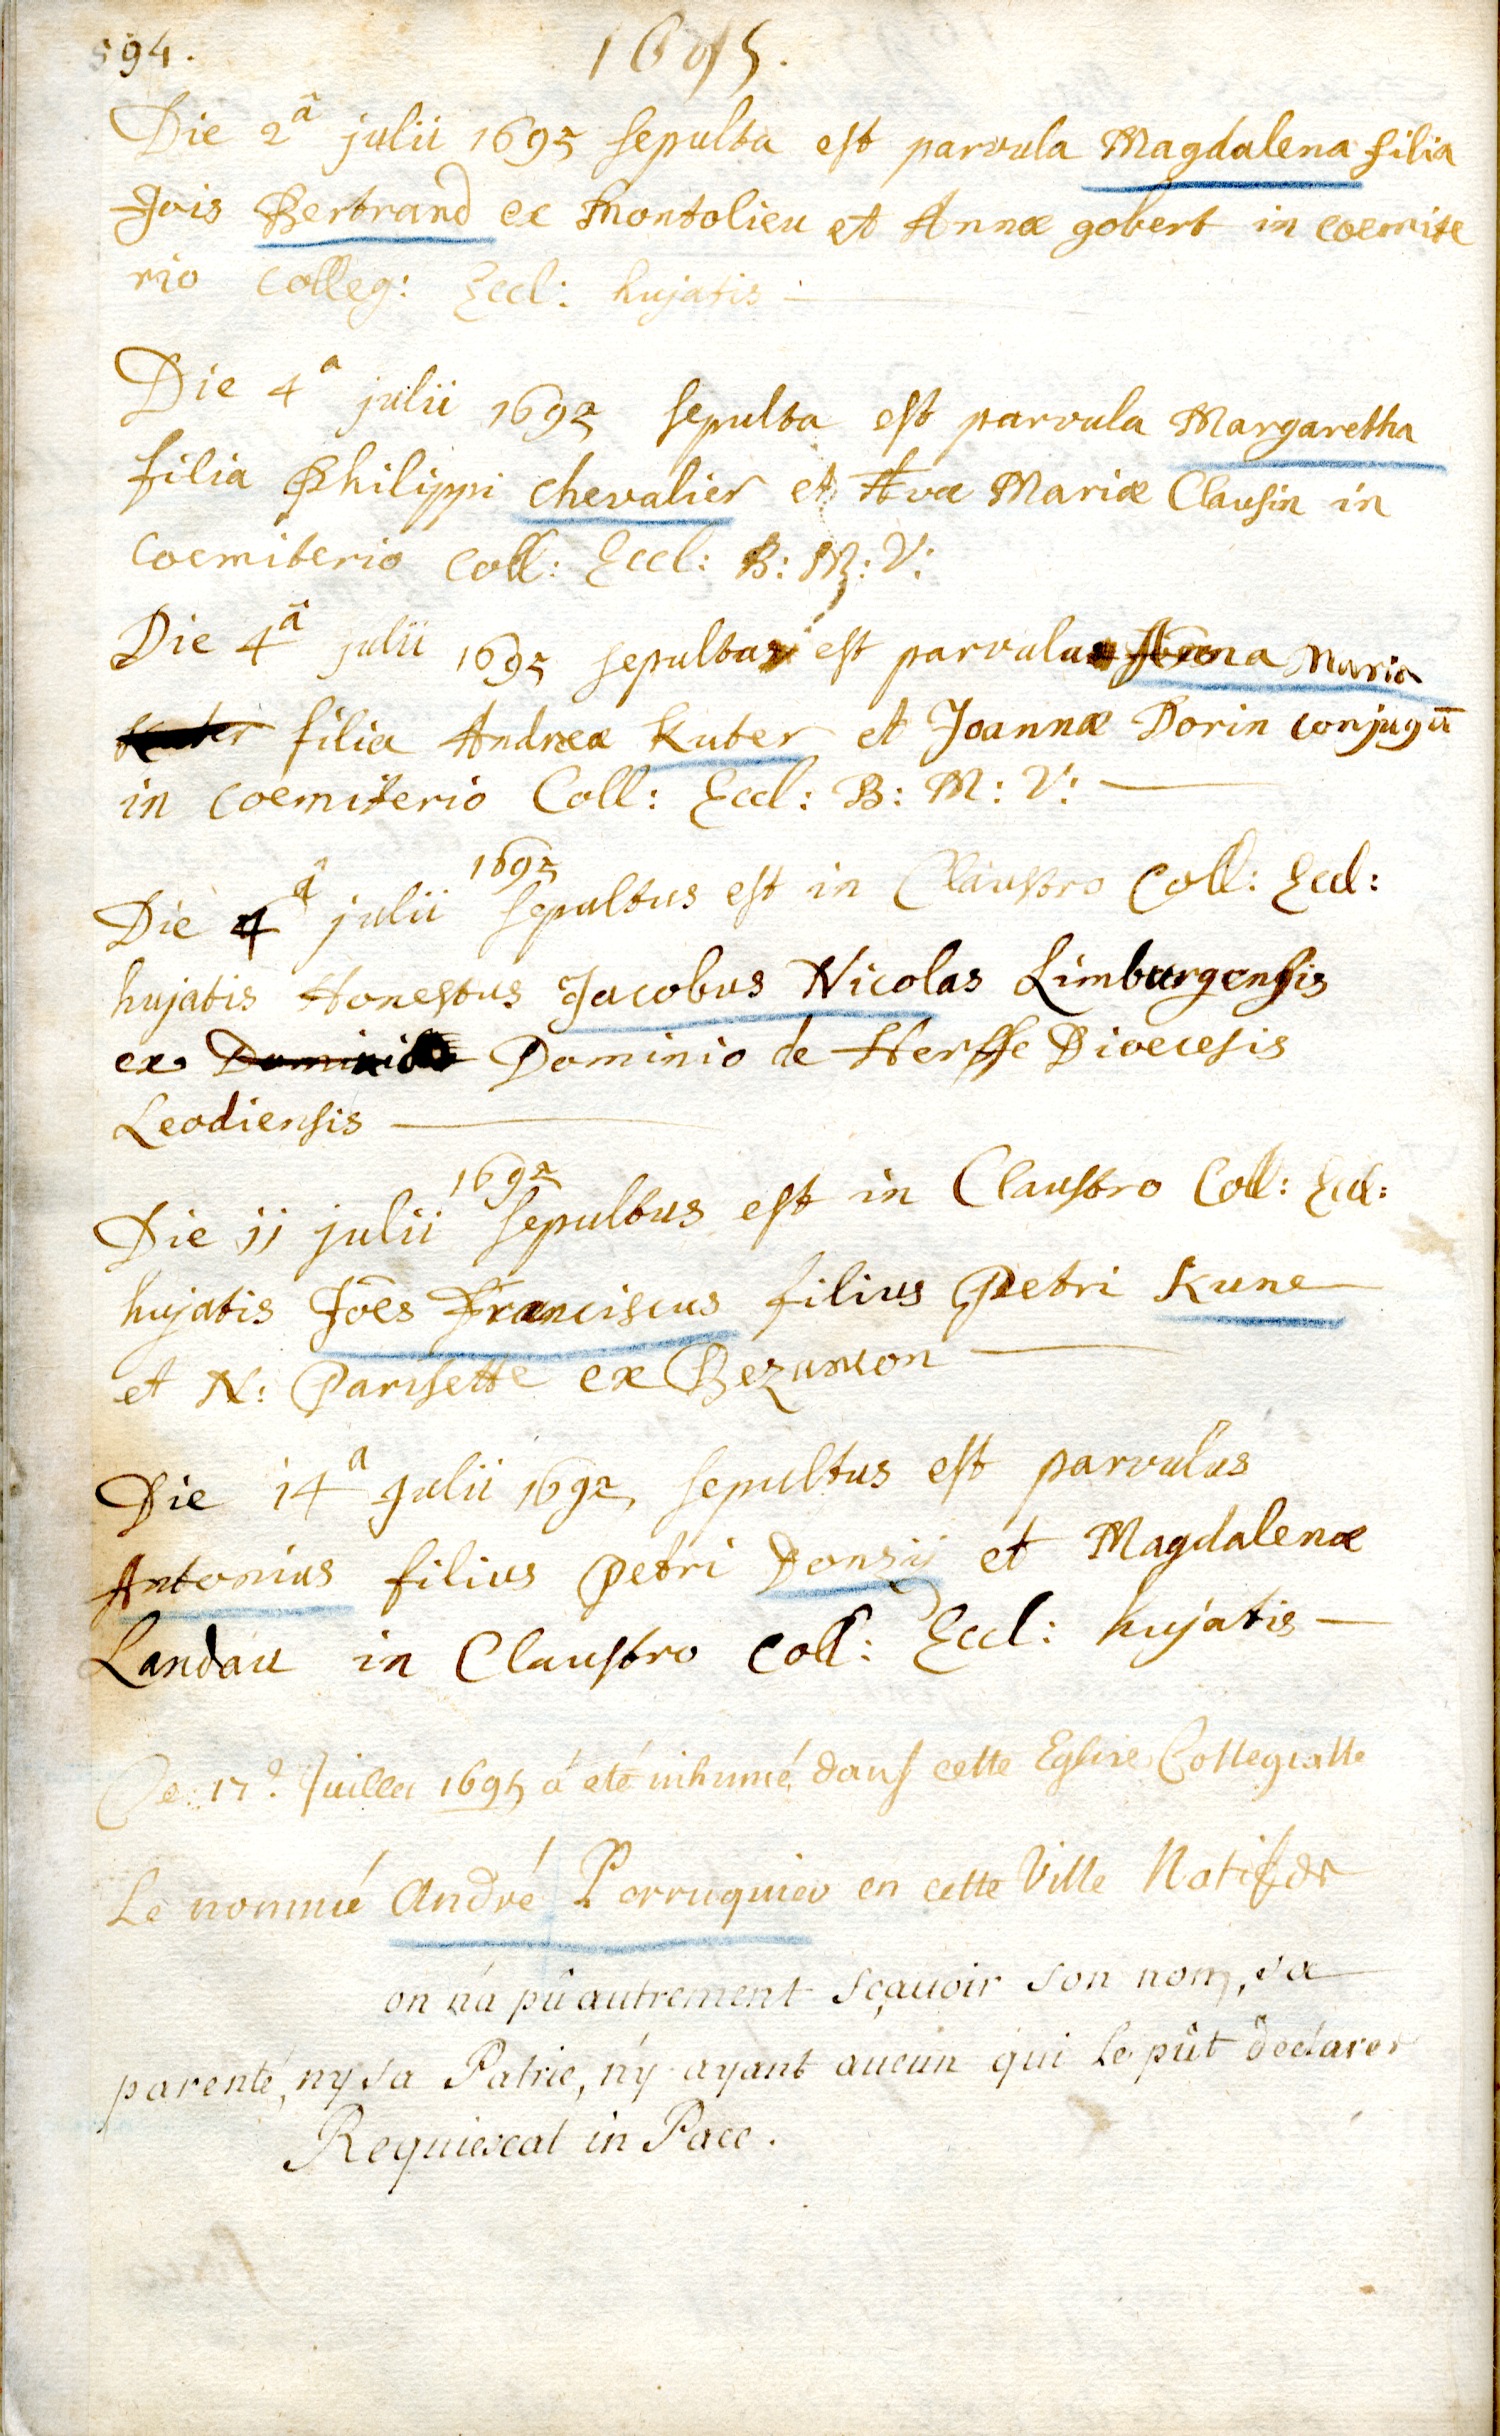 594.
1695.
Die 2â julii 1695 sepulta est parvula Magdalena filia
Jois Bertrand ex Montolieu et Annæ gobert in coemite
rio Colleg: Eccl: hujatis
Die 4a julii 1695 sepulta est parvula Margaretha
filia Philippi chevalier et Avæ Mariæ Clausin in
Coemiterio Coll: Eccl: B: M: V:
Die 4â julii 1695 sepulta est parvula Maria
filia Andreæ Kuter et Joannæ Dorin conjugū
in Coemiterio Coll: Eccl: B: M: V:
Die 4â julii 1695 sepultus est in Claustro Coll: Eccl:
hujatis Honestus Jacobus Nicolas Limburgensis
ex Dominio de Herffe Dioecesis
Leodiensis
Die 11 julii 1695 sepultus est in Claustro Coll: Eccl:
hujatis Jōes Franciscus filius Petri Kune
et N: Parisette ex Bezancon
Die 14a Julii 1695 sepultus est parvulus
Antonius filius Petri Donzij et Magdalenæ
Landau in Claustro Coll: Eccl: hujatis
Ce 17e Juillet 1695 á eté inhumé dans cette Eglise Collegialle
Le nommé André Perruquier en cette Ville Natif de
on n'a pû autrement sçauoir son nom, sa
parenté, ny sa Patrie, n'y ayant aucun qui le pût declarer
Requiescat in Pace.